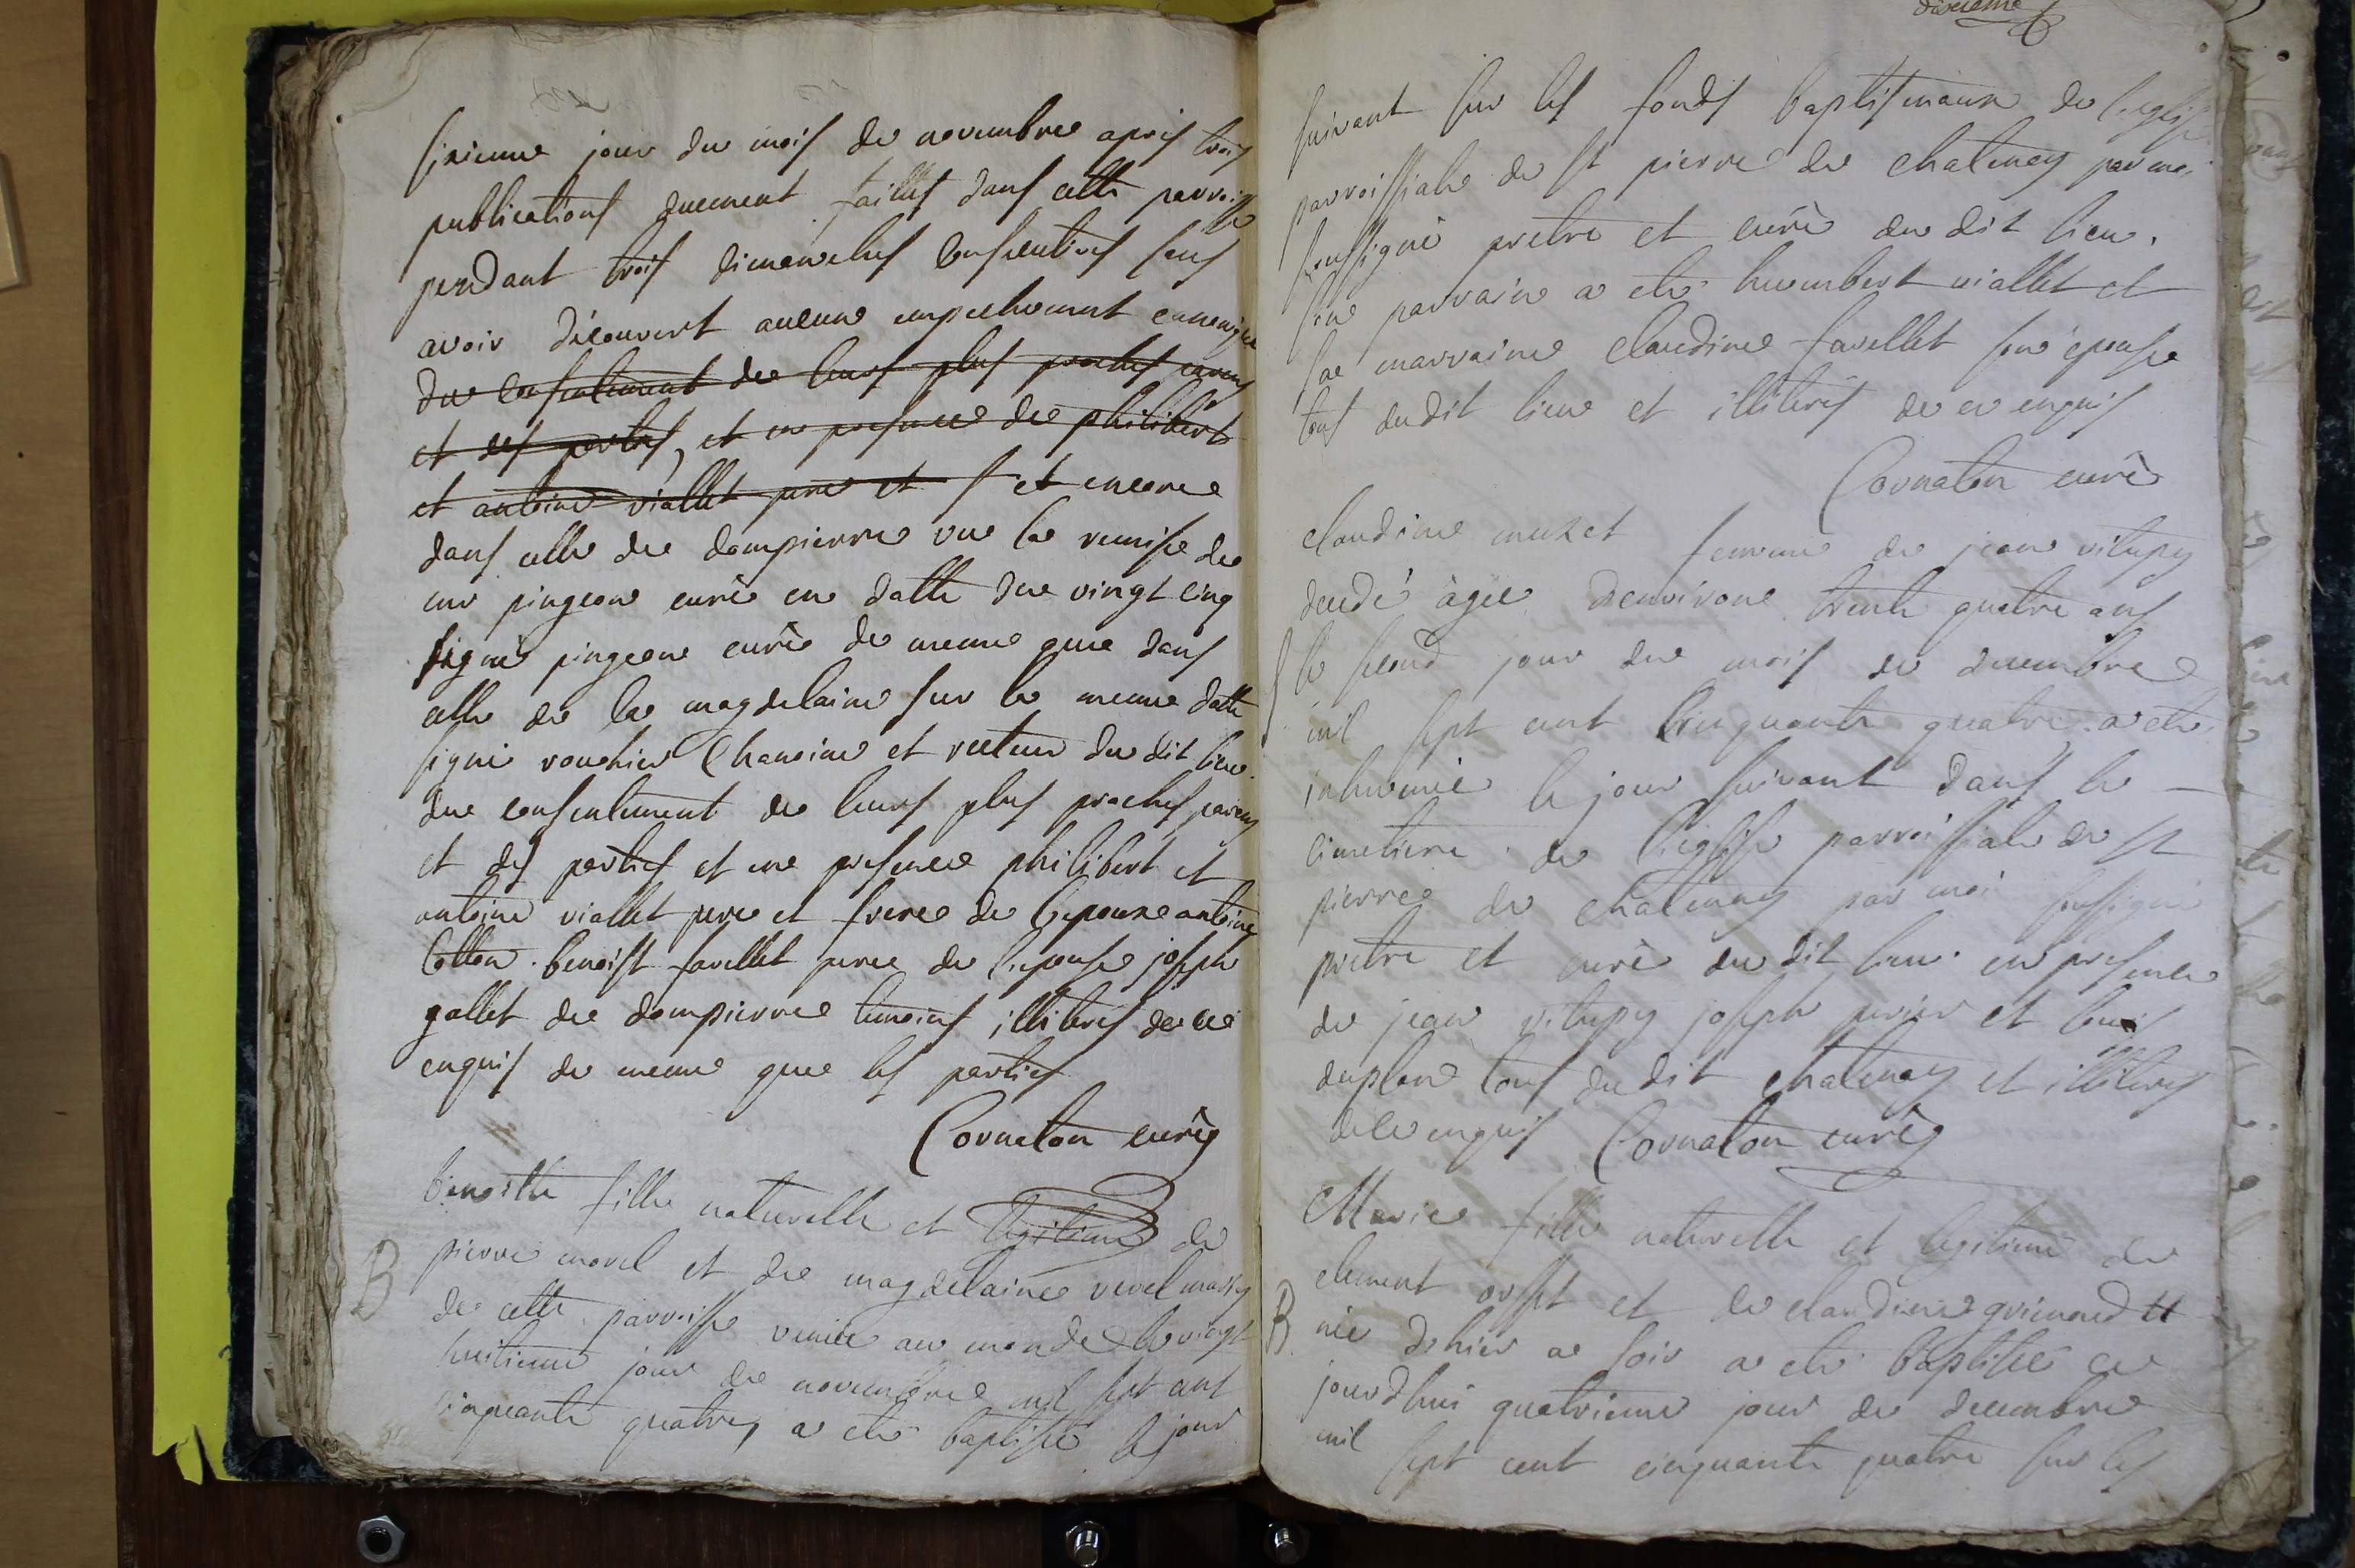 sixieme jour du mois de novembre apres trois
publications duement faittes dans cette parroisse
pendant trois dimanches consecutives sans
avoir découvert aucune empechement canonique
du consentement de leurs plus proches parens
et des parties, et en presence de philibert
et antoine viallet pere et f et encore
dans celle de dompierre vue la remise de
mr pingeon curé en datte du vingt cinq
signé pingeon curé de meme que dans
celle de la magdelaine sur la meme datte
signé vouchier Chanoine et recteur du dit lieu.
du consentement de leurs plus proches parens
et des parties et en presence philibert et
antoine viallet pere et frere de l'epoux antoine
Cotton. benoist favellet pere de l'epouse joseph
gallet de dompierre temoins illiterés de ce
enquis de meme que les parties
Cornaton curé
benoitte fille naturelle et legitime de
pierre morel et de magdelaine revel
B de cette parroisse venue au monde le vingt
huitieme jour de novembre mil sept cent
cinquante quatre, a eté baptisée le jour
dixieme
suivant sur les fonds baptismaux de l'eglise
parroissiale de st pierre de chatenay par moi
soussigné pretre et curé du dit lieu.
son parrain a eté humbert viallet et
sa marraine claudine favellet son épouse
tous dudit lieu et illiterés de ce enquis
Cornaton curé
claudine muzet femme de jean vitupy
decedé âgée d'environ trente quatre ans
S le second jour du mois de decembre
mil sept cent cinquante quatre a eté
inhumée le jour suivant dans le
cimetiere de l'eglise parroissiale de st
pierre de chatenay par moi soussigné
pretre et curé du dit lieu. en presence
de jean vitupy joseph perier et louis
duplan tous du dit chatenay et illiterés
de ce enquis Cornaton curé
Marie fille naturelle et legitime de
clement orset et de claudine grimaud
B née d'hier a soir a eté baptisée ce
jourd'hui quatrieme jour de decembre
mil sept cent cinquante quatre sur les